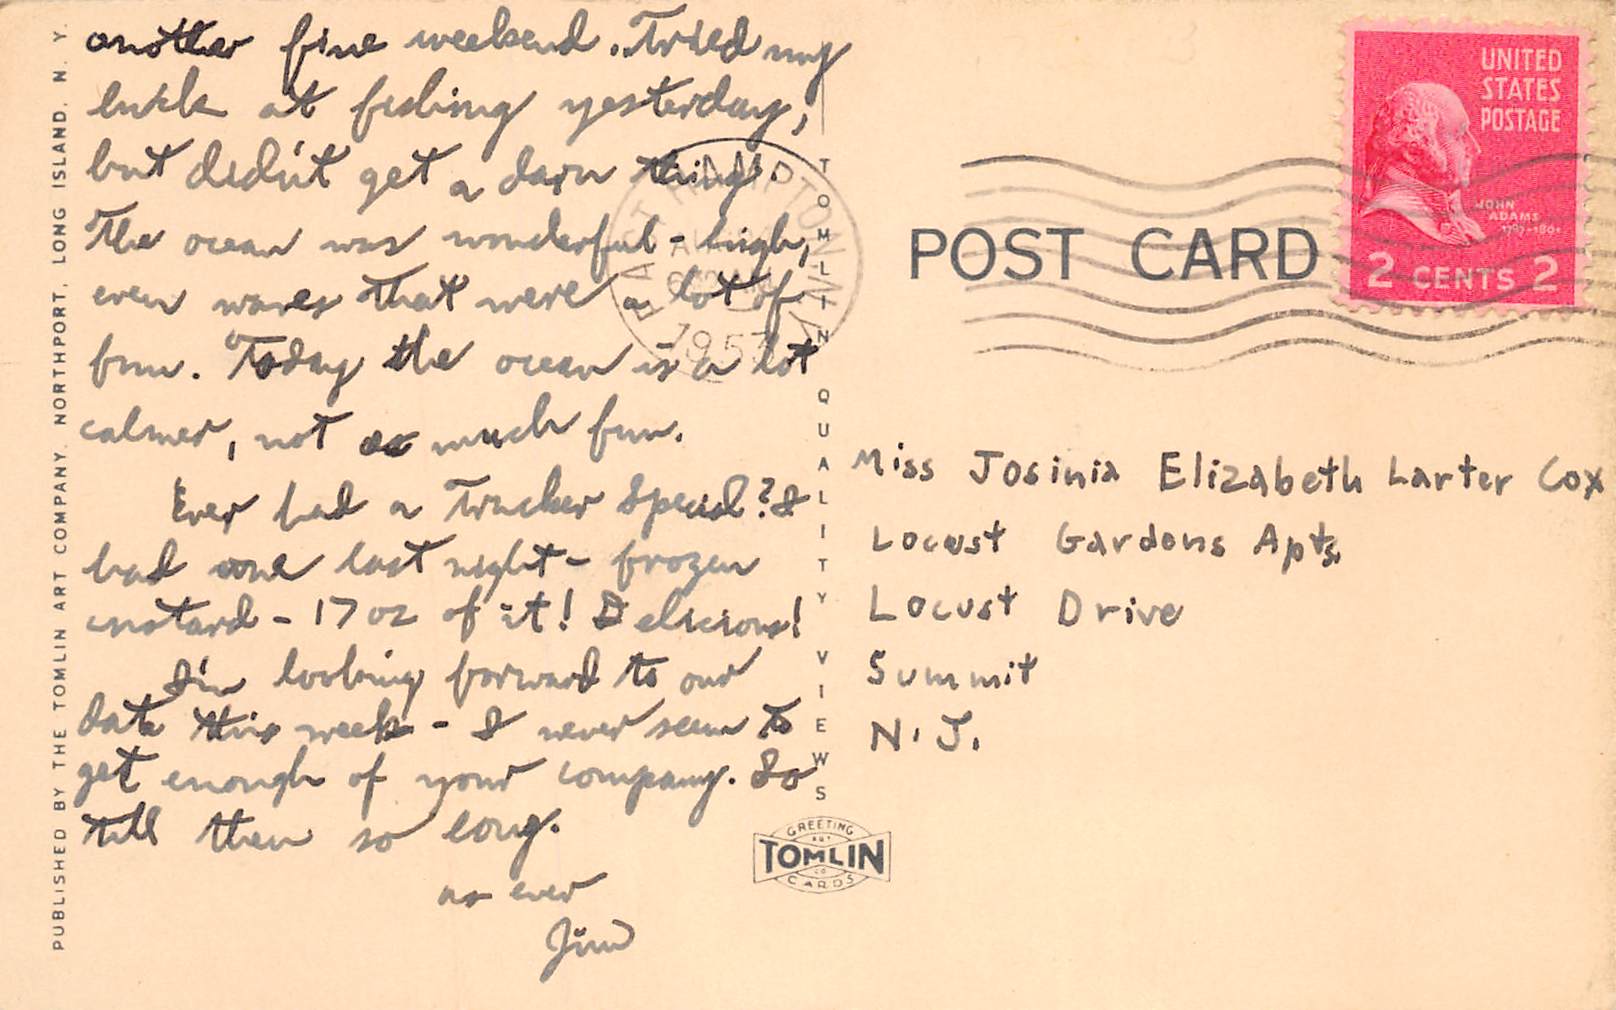 another fine weekend. Tried my
luck at fishing yesterday,
but didn't get a darn thing.
The ocean was wonderful - high,
even waves that were a lot of
fun. Today the ocean is a lot
calmer, not as much fun.
Ever had a Trucker Special? I
had one last night - frozen
custard - 17 oz of it! Delicious!
I'm looking forward to our
date this week - I never seem to
get enough of your company. So
till then so long.
as ever
Jim
PUBLISHED BY THE TOMLIN ART COMPANY, NORTHPORT, LONG ISLAND, N. Y.
TOMLIN QUALITY VIEWS
GREETING
ART
TOMLIN
CO
CARDS
EAST HAMPTON
1953
N.Y.
POST CARD
UNITED
STATES
POSTAGE
JOHN
ADAMS
1797-1801
2 CENTS 2
Miss Josinia Elizabeth Larter Cox
Locust Gardens Apts.
Locust Drive
Summit
N.J.